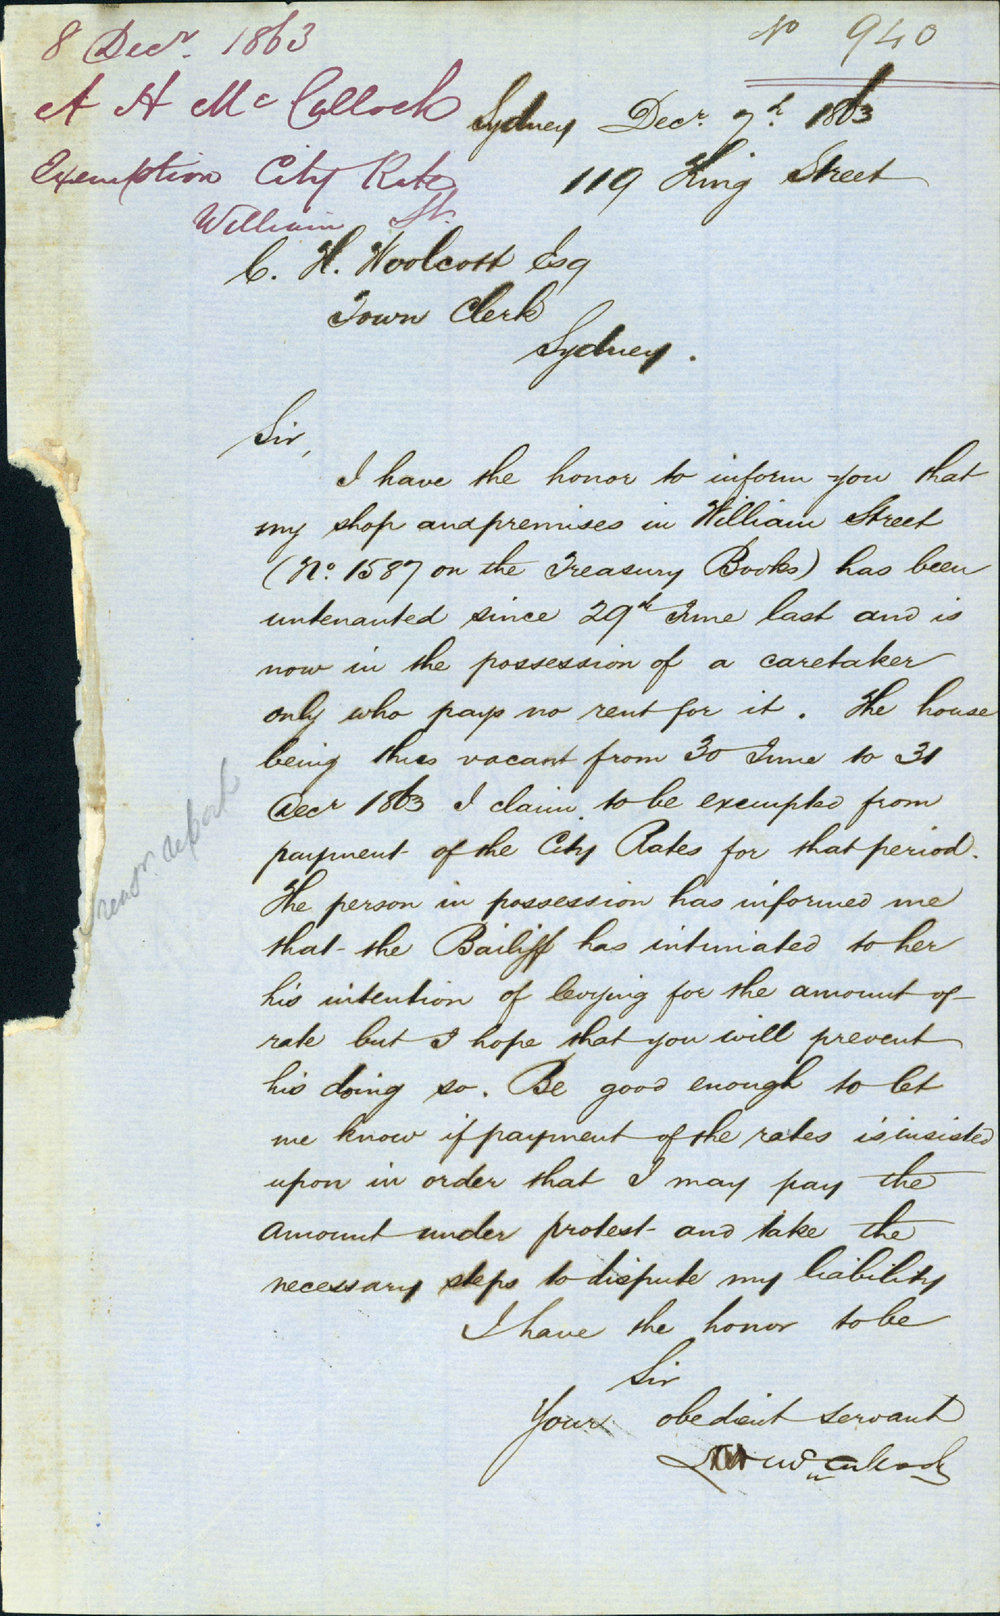 8 Decr. 1863
No 940
A H McCulloch
Exemption City Rate
William St.
Sydney Decr. 7th. 1863
119 King Street
C. H. Woolcott Esq
Town Clerk
Sydney.
Sir,
I have the honor to inform you that
my shop and premises in William Street
(No. 1587 on the Treasury Books) has been
untenanted since 29th June last and is
now in the possession of a caretaker
only who pays no rent for it. The house
being thus vacant from 30 June to 31
Decr 1863 I claim to be exempted from
payment of the City Rates for that period.
The person in possession has informed me
that the Bailiff has intimated to her
his intention of levying for the amount of
rate but I hope that you will prevent
his doing so. Be good enough to let
me know if payment of the rates is insisted
upon in order that I may pay the
amount under protest and take the
necessary steps to dispute my liability
I have the honor to be
Sir
Your obedient servant
A H McCulloch
Treasr. report